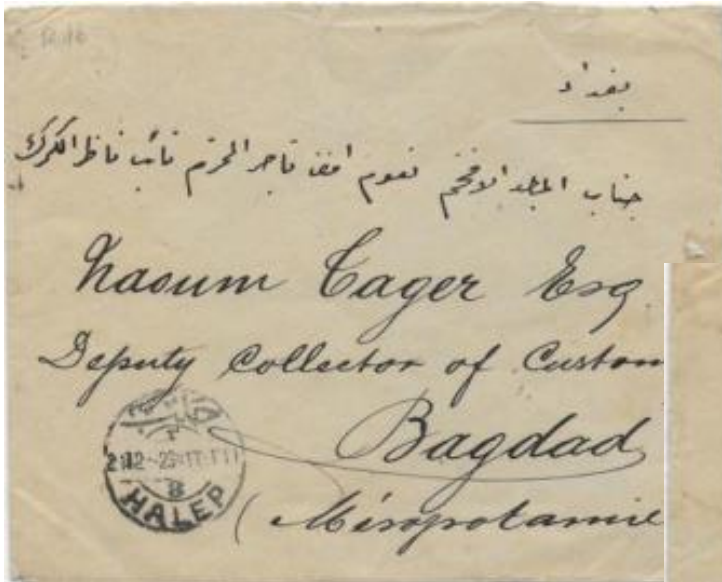 بغداد
جناب الافخم نعوم تاجر المحترم نائب ناظر الكمرك
Naoum Tager Esq
Deputy Collector of Custom
Bagdad
(Mésopotamie
HALEP